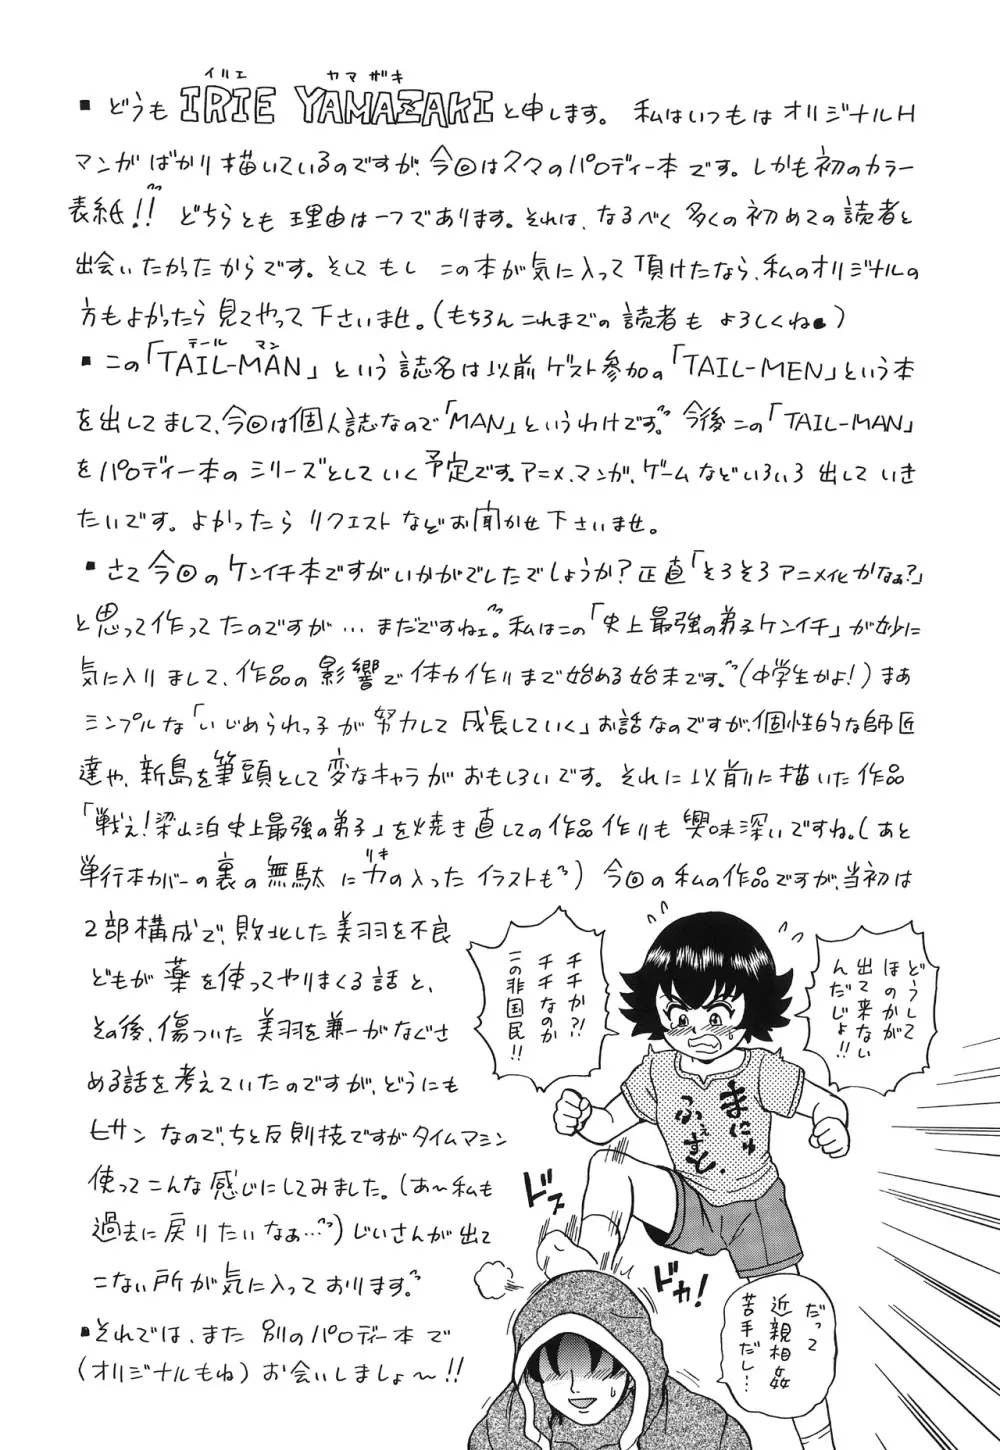 イルエ ヤマザキ
▪どうも IRIE YAMAZAKIと申します。 私はいつもは オリジナルH
マンガばかり描いているのですが、今回は久々のパロディー本です。しかも初のカラー
表紙!! どちらとも理由は一つであります。それは、なるべく多くの初めての読者と
出会いたかったからです。そしてもし この本が気に入って頂けたなら、私のオリジナルの
方もよかったら見てやって下さいませ。(もちろんこれまでの読者も よろしくね)
テール マン
▪この「TAIL-MAN」という誌名は以前ゲスト参加の「TAIL-MEN」という本
を出してまして、今回は個人誌なので「MAN」というわけです。今後この「TAIL-MAN」
をパロディー本のシリーズとしていく予定です。アニメ、マンガ、ゲームなどいろいろ出していき
たいです。よかったらリクエストなどお聞かせ下さいませ。
▪さて今回のケンイチ本ですがいかがでしたでしょうか?正直「そろそろアニメ化かなぁ?」
と思って作ってたのですが…まだですねェ。私はこの「史上最強の弟子ケンイチ」が妙に
気に入りまして、作品の影響で体力作りまで始める始末です。(中学生かよ!)まあ
シンプルな「いじめられっ子が努力して成長していく」お話なのですが、個性的な師匠
達や、新島を筆頭として変なキャラがおもしろいです。それに以前に描いた作品
「戦え!梁山泊史上最強の弟子」を焼き直しての作品作りも興味深いですね。(あと
リキ
単行本カバーの裏の無駄に力の入ったイラストも) 今回の私の作品ですが、当初は
2部構成で、敗北した美羽を不良
どもが薬を使ってやりまくる話と、
その後、傷ついた美羽を兼一がなぐさ
める話を考えていたのですが、どうにも
ヒサンなので、ちと反則技ですがタイムマシン
使ってこんな感じにしてみました。(あ〜私も
過去に戻りたいなぁ…)じいさんが出て
こない所が気に入っております。
▪それでは、また別のパロディー本で
(オリジナルもね)お会いしましょ〜!!
どうして
ほのかが
出て来ない
んだじょ!!
チチか?!
チチなのか
この非国民!!
まにゅ
ふぇすと、
ドズ
ドカ!
だって
近親相姦
苦手だし…